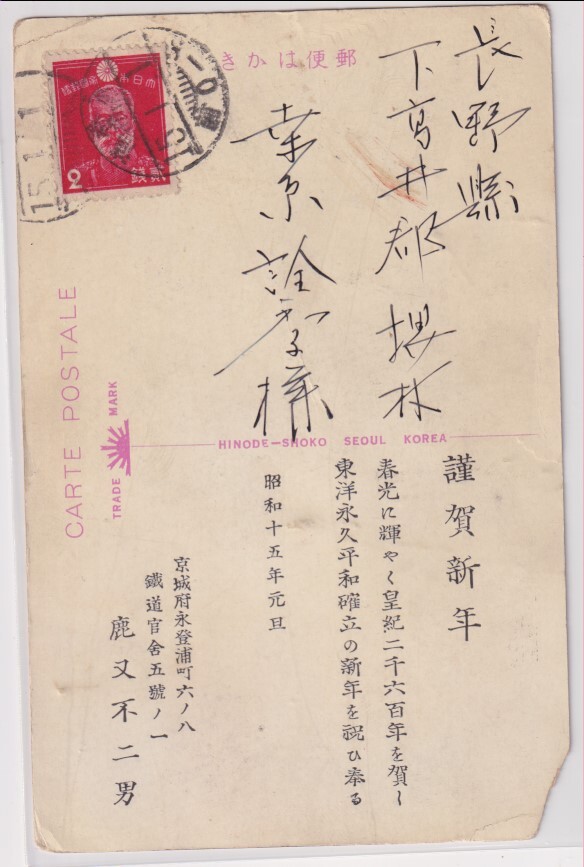 きがは便郵
大日本帝国郵便
2
貳銭
15.1.1
長野縣
下高井郡
様
CARTE POSTALE
TRADE MARK
HINODE-SHOKO SEOUL KOREA
謹賀新年
春光に輝やく皇紀二千六百年を賀し
東洋永久平和確立の新年を祝ひ奉る
昭和十五年元旦
京城府永登浦町六ノ八
鐵道官舍五號ノ一
鹿又不二男